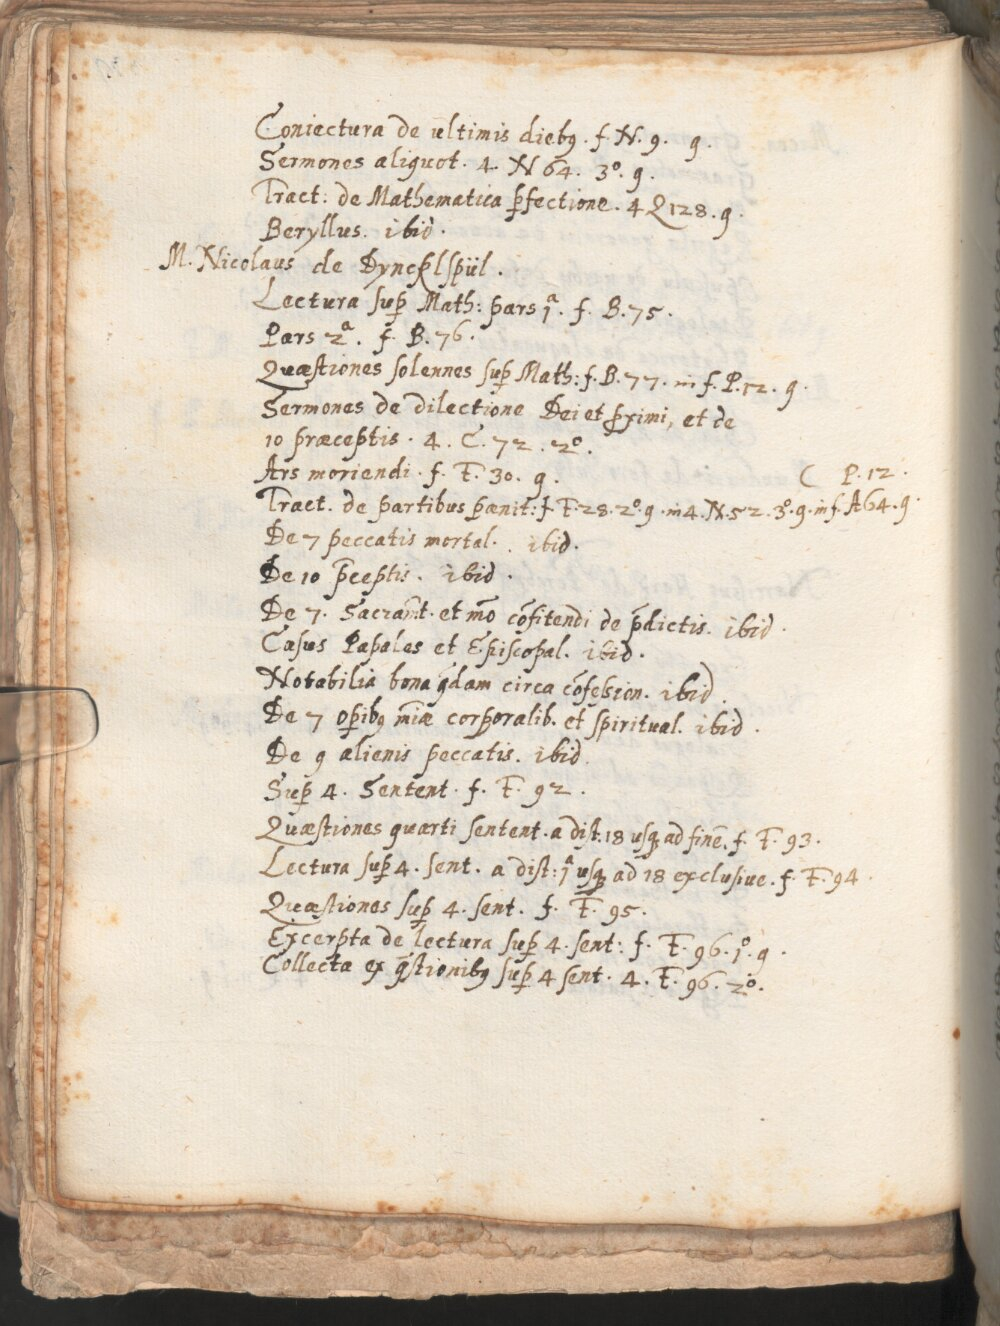 Coniectura de ultimis dieb9. f N. 9. g.
Sermones aliquot. 4. N 64. 3°. g.
Tract: de Mathematica ꝑfectione. 4 Q 128. g.
Beryllus. ibid.
M. Nicolaus de Dynckhlspül.
Lectura suꝑ Math: pars 1ª. f. B. 75.
Pars 2ª. f. B. 76.
Quæstiones solennes suꝑ Math: f. B. 77. in f. P. 12. g.
Sermones de dilectione Dei et ꝓximi, et de
10 præceptis. 4. C. 72. 2°.
Ars moriendi. f. F. 30. g. ( P. 12.
Tract. de partibus pænit: f F 28. 2°. g. in 4. N. 52. 3°. g. in f. A 64. g
De 7 peccatis mortal. ibid.
De 10 p̄ceptis. ibid.
De 7. Sacram̄t. et mō cōfitendi de p̄dictis. ibid.
Casus Papales et Episcopal. ibid.
Notabilia bona q̄dam circa cōfession. ibid.
De 7 oꝑib9 miæ corꝑoralib. et spiritual. ibid.
De 9 alienis peccatis. ibid.
Suꝑ 4. Sentent. f. F. 92.
Quæstiones quarti sentent. a dist. 18 usq, ad finē. f F. 93.
Lectura suꝑ 4. sent. a dist: 1ª usq, ad 18 exclusive. f. F. 94.
Quæstiones suꝑ 4. sent. f. F. 95.
Excerpta de lectura suꝑ 4. sent: f. F. 96. 1°. g.
Collecta ex q̄stionib9 suꝑ 4 sent. 4. F. 96. 2°.